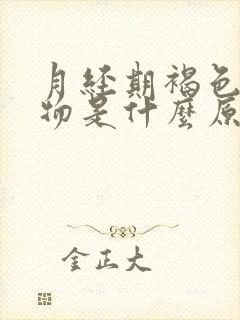 月经期褐色
物是什麼原
金正大